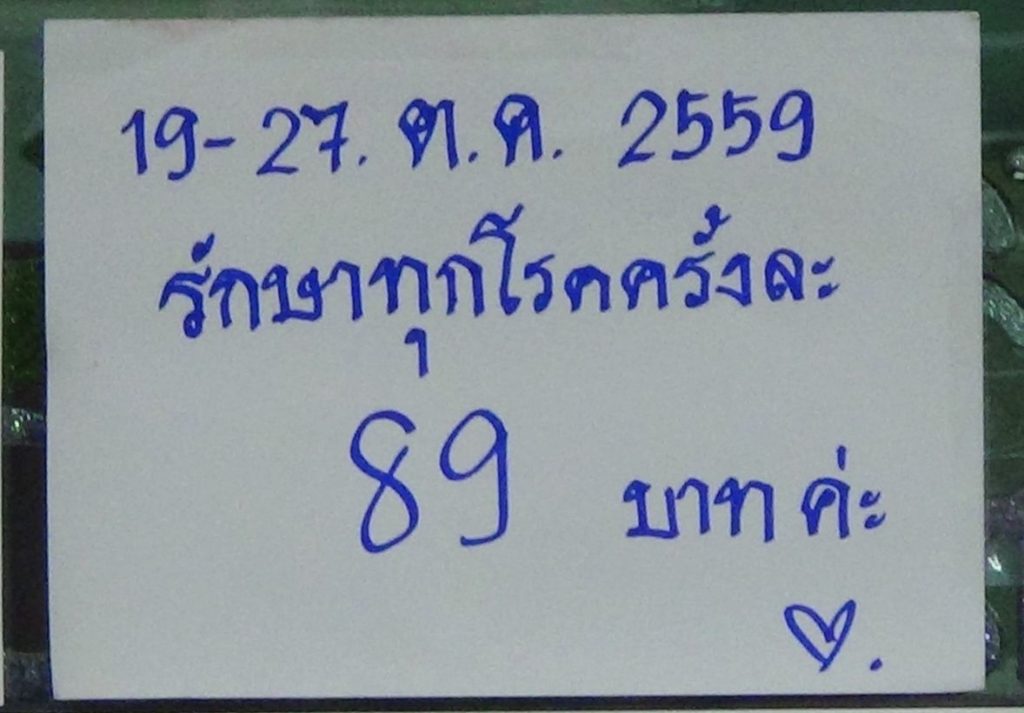 19-27. ต.ค. 2559
รักษาทุกโรคครั้งละ
89 บาท ค่ะ
♡.